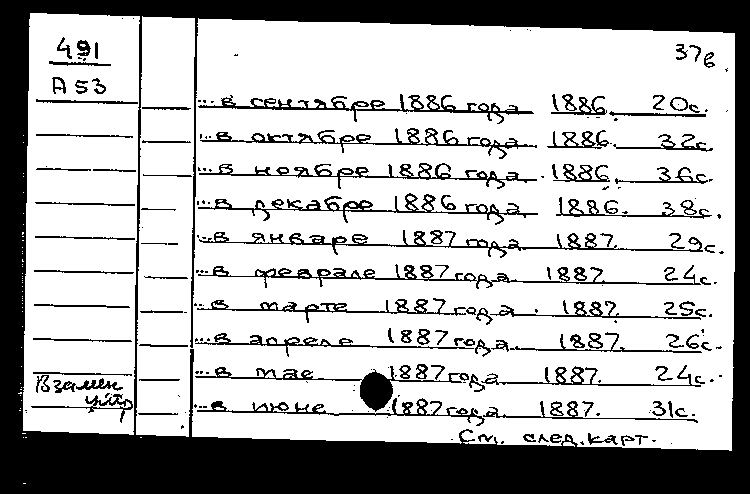 491
А53
37в
...в сентябре 1886 года 1886. 20с.
...в октябре 1886 года 1886. 32с.
...в ноябре 1886 года. 1886. 36с.
...в декабре 1886 года 1886. 38с.
...в январе 1887 года 1887. 29с.
...в феврале 1887 года 1887. 24с.
...в марте 1887 года. 1887. 25с.
...в апреле 1887 года 1887. 26с.
...в мае 1887 года 1887. 24с.
...в июне 1887 года. 1887. 31с.
Взамен
См. след. карт.